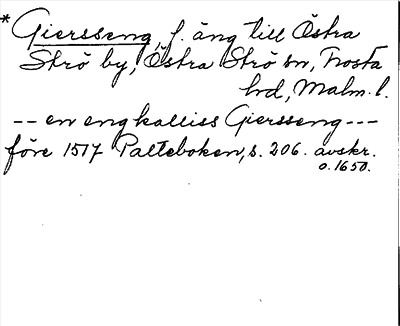 * Giersseng, f. äng till Östra
Strö by, Östra Strö sn, Frosta
hd, Malm. l.
-- en eng kalliss Giersseng ---
före 1517 Palteboken, s. 206. avskr.
o. 1650.